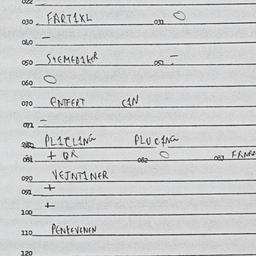 022
030 FART1XL 031 O
040 –
050 STEMED1KER 051 –
060 O
070 ENTFERT C1N
071 –
080 PL1CL1NG PLUC1NG
081 + QR 082 O 083
090 VEJNT1NER
091 +
100 +
110 PENKEVENEN
120